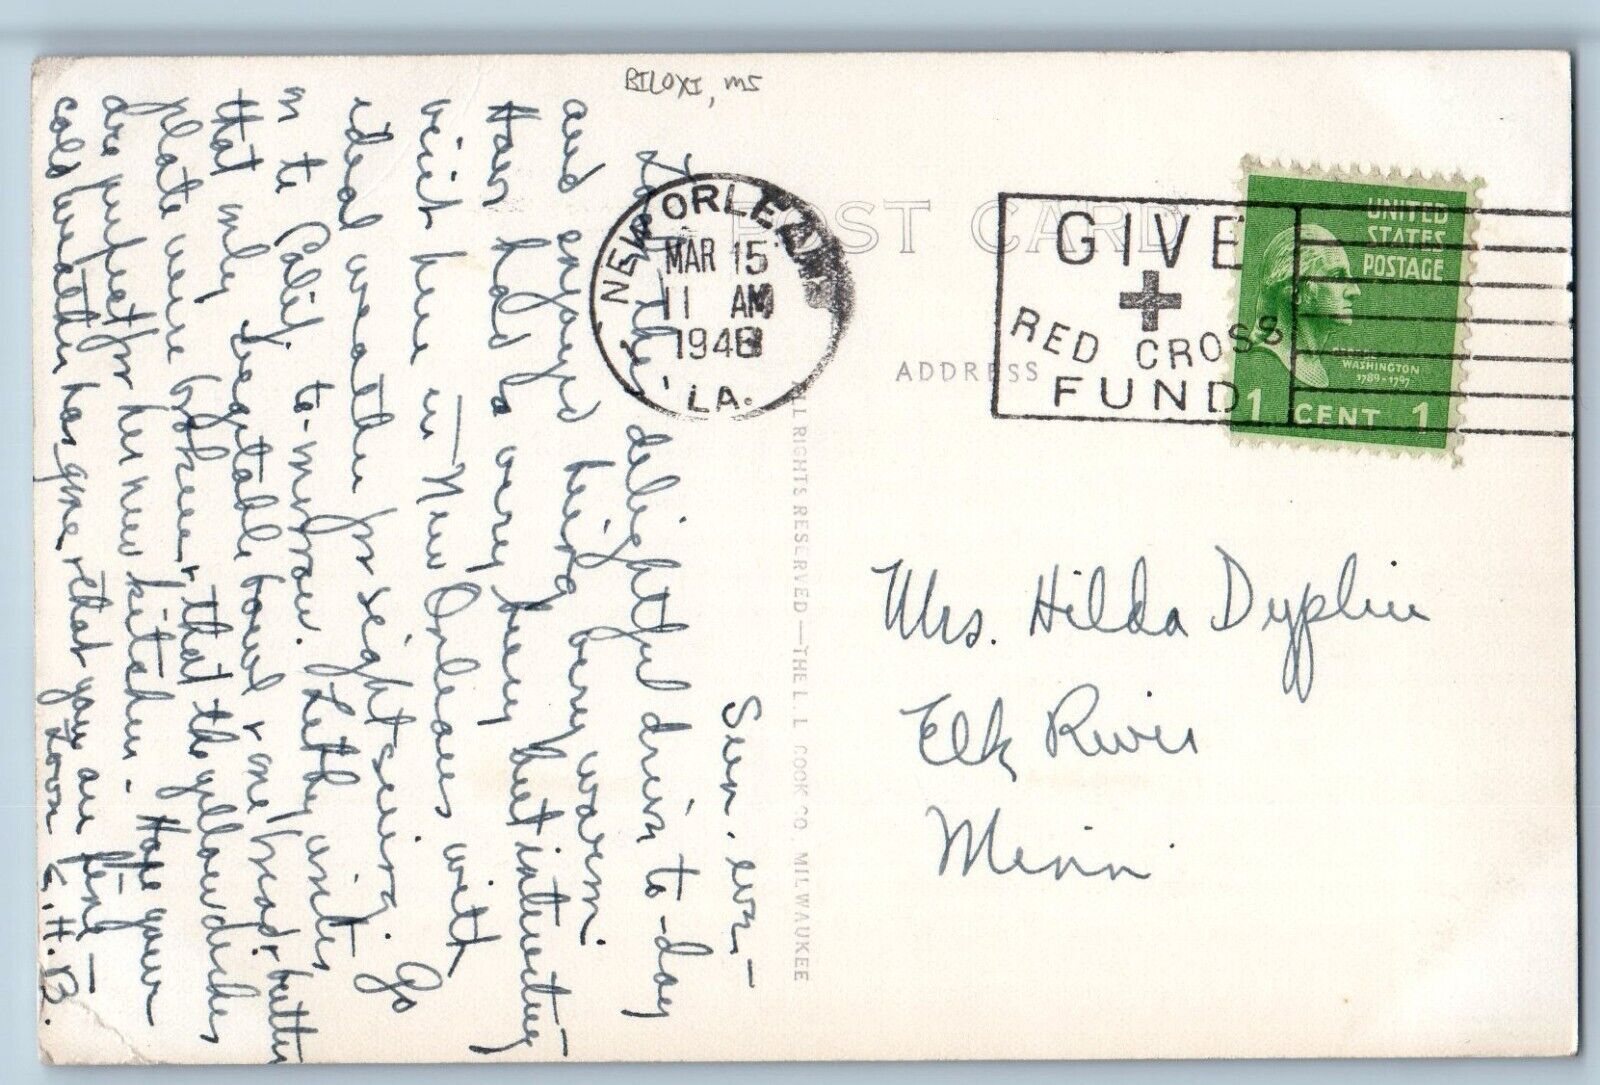 BILOXI, MS
POST CARD
NEW ORLEANS
MAR 15
11 AM
1948
LA.
GIVE
RED CROSS
FUND
UNITED
STATES
POSTAGE
GEORGE
WASHINGTON
1789-1797
1 CENT 1
ADDRESS
ALL RIGHTS RESERVED — THE L. L. COOK CO. MILWAUKEE
Mrs. Hilda
Elk River
Minn.
Sun. eve—
delightful drive to-day
and enjoyed being very warm.
Have had a very busy but interesting
visit here in New Orleans with
ideal weather for sight seeing. Go
on to Calif to-morrow. Letha writes
that only vegetable bowl & one bread & butter
plate were broken & that the yellow dishes
are perfect for her new kitchen. Hope your
cold weather has gone & that you are fine—
Love E.H.B.